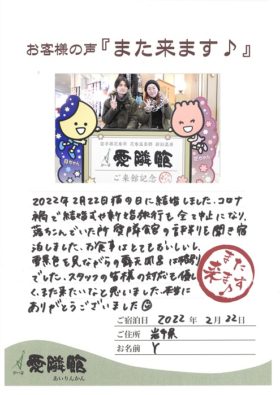 お客様の声『また来ます♪』
愛隣館
ご来館記念
2022年2月22日猫の日に結婚しました。コロナ
禍で結婚式や新婚旅行も全て中止になり、
落ちこんでいた所、愛隣館の評判を聞き宿
泊しました。お食事はとてもおいしいし、
雪景色を見ながらの露天風呂は格別
でした。スタッフの皆様の対応も優し
く、また来たいなと思いました。本当に
ありがとうございました☺
また来ます
ご宿泊日 2022年2月22日
ご住所 岩手県
お名前 Y
愛隣館
あいりんかん